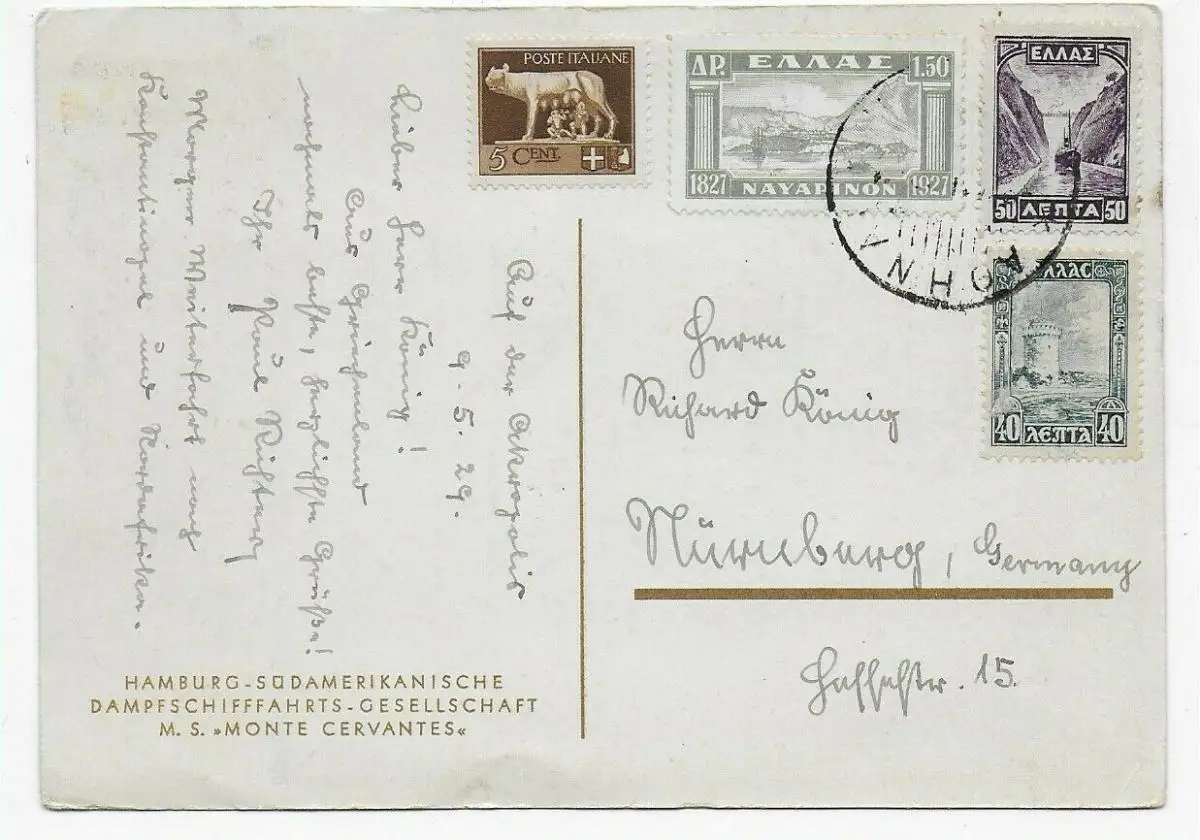 POSTE ITALIANE
5 CENT.
ΔΡ. ΕΛΛΑΣ 1.50
1827 ΝΑΥΑΡΙΝΟΝ 1827
ΕΛΛΑΣ
50 ΛΕΠΤΑ 50
ΕΛΛΑΣ
40 ΛΕΠΤΑ 40
ΑΘΗΝΑΙ
Auf der Akropolis
9. 5. 29.
Lieber Herr König!
Aus Griechenland
nochmals beste, herzlichste Grüße!
Ihr Paul
Morgen Weiterfahrt nach
Konstantinopel und Nordafrika.
Herrn
Richard König
Nürnberg, Germany
15.
HAMBURG-SÜDAMERIKANISCHE
DAMPFSCHIFFFAHRTS-GESELLSCHAFT
M. S. »MONTE CERVANTES«